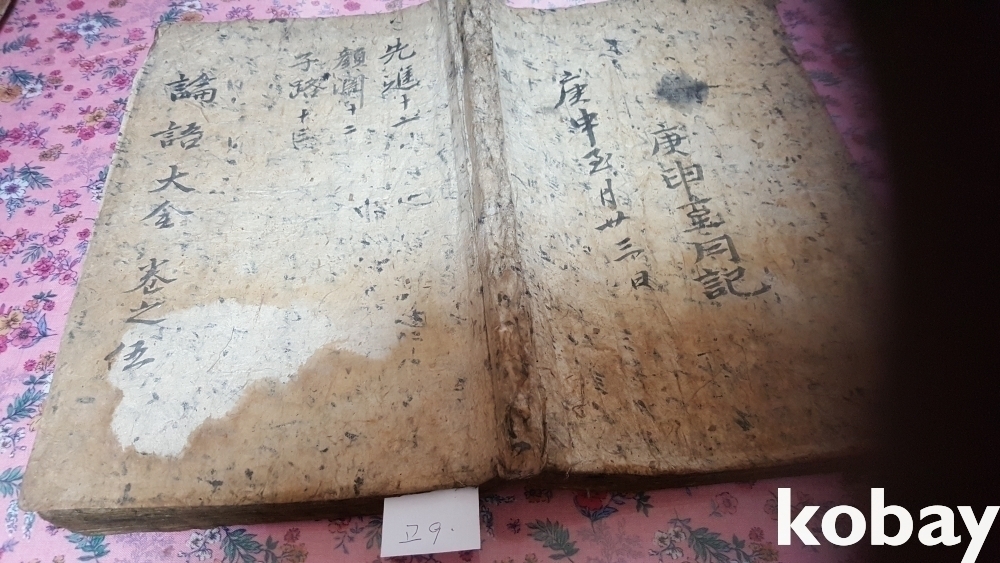 庚申至月記
庚申至月廿三日
先進十一
顏淵十二
子路十三
論語大全 卷之伍
고9.
kobay